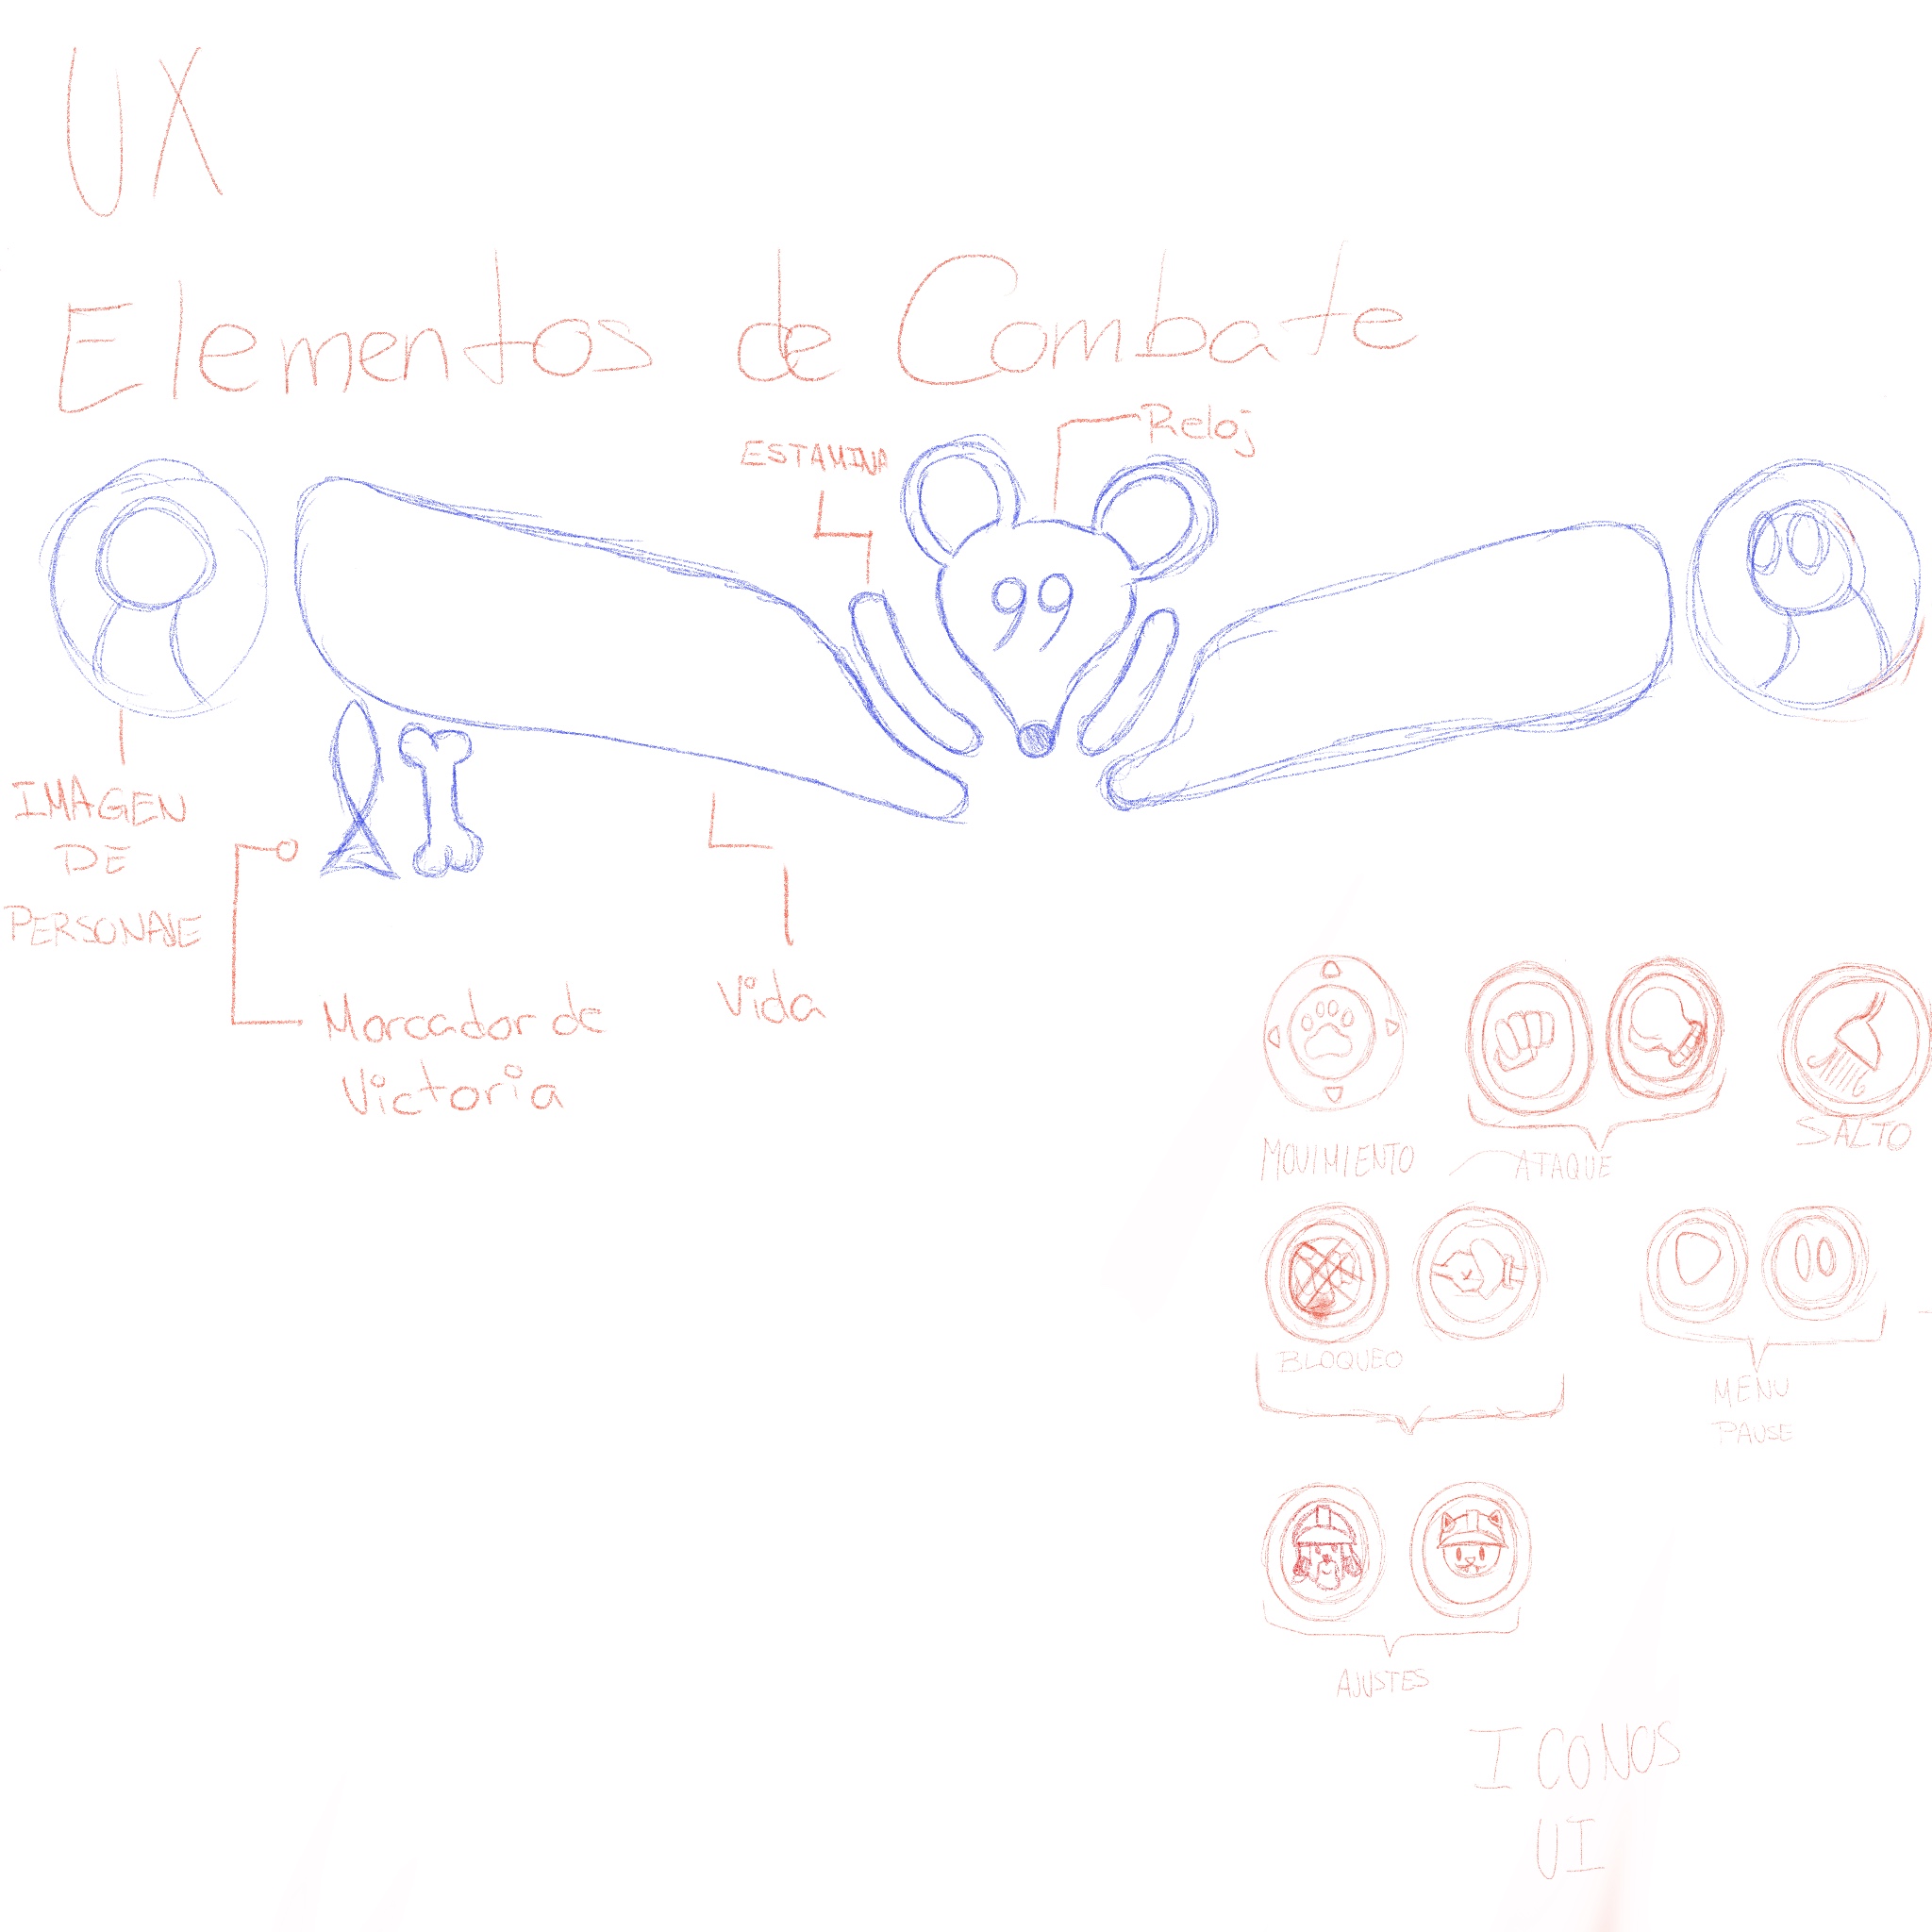 UX
Elementos de Combate
ESTAMINA
Reloj
99
IMAGEN
DE
PERSONAJE
Marcador de
Victoria
Vida
MOVIMIENTO
ATAQUE
SALTO
BLOQUEO
MENU
PAUSE
AJUSTES
ICONOS
UI